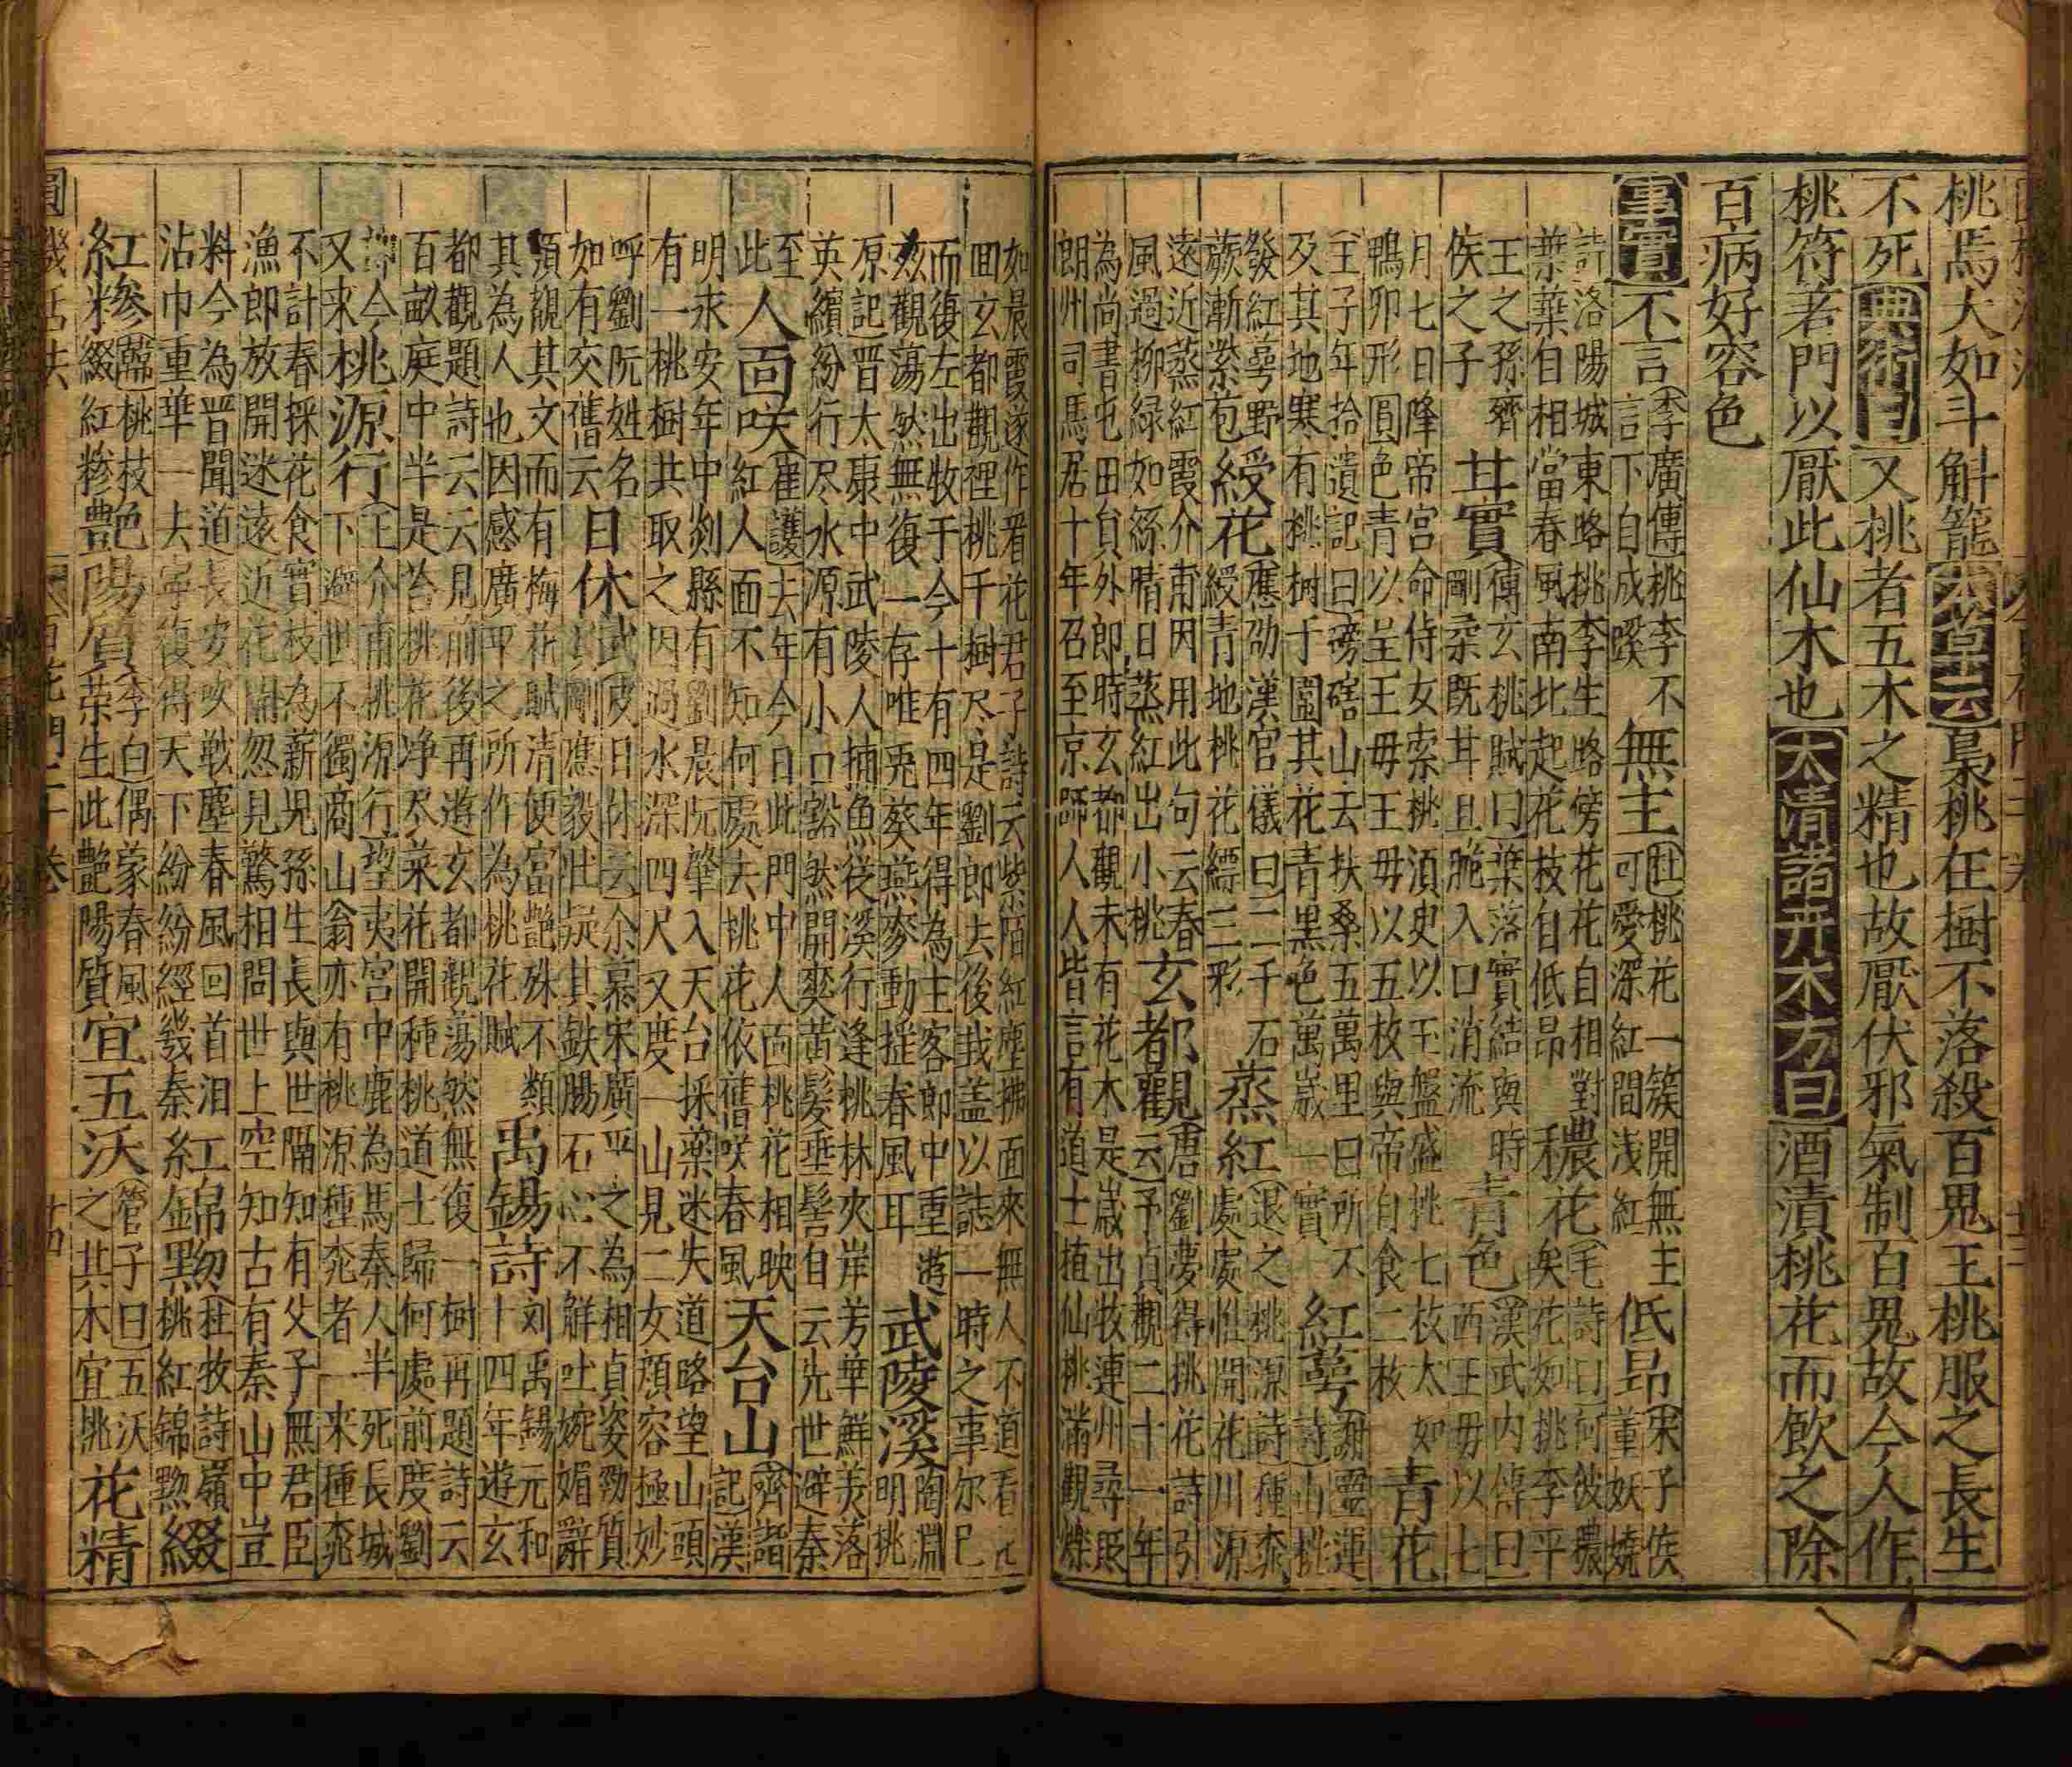 桃焉大如斗斛籠本草云梟桃在樹不落殺百鬼王桃服之長生
不死典術曰又桃者五木之精也故厭伏邪氣制百鬼故今人作
桃符著門以厭此仙木也太清諸卉木方曰酒漬桃花而飲之除
百病好容色
事實不言李廣傳桃李不言下自成蹊無主杜桃花一簇開無主可愛深紅間淺紅低昂宋子侯董妖嬈
詩洛陽城東路桃李生路傍花花自相對葉葉自相當春風南北起花枝自低昂穠花毛詩曰何彼穠矣花如桃李平
王之孫齊侯之子甘實傳玄桃賦曰葉落實結與時剛柔既甘且脆入口消流青色漢武內傳曰西王毋以七
月七日降帝宮命侍女索桃須史以玉盤盛桃七枚太如鴨卵形圓色青以呈王毋王毋以五枚與帝自食二枚青花
王子年拾遺記曰磅磄山去扶桑五萬里曰所不及其地寒有桃樹于園其花青黑色萬歲一實紅萼謝靈運詩山桃
發紅萼野蕨漸紫苞綬花應劭漢官儀曰二千石綬青地桃花縹三彩蒸紅退之桃源詩種桃處處惟開花川源
遠近蒸紅霞介甫因用此句云春風過柳綠如繰晴日蒸紅出小桃玄都觀唐劉夢得桃花詩引云予貞觀二十一年
為尚書屯田員外郎時玄都觀未有花木是歲出牧連州尋貶朗州司馬居十年召至京師人人皆言有道士植仙桃滿觀爍
如晨霞遂作看花君子詩云紫陌紅塵拂面來無人不道看花回玄都觀裡桃千樹尽是劉郎去後栽盖以誌一時之事尔已
而復左出牧于今十有四年得為主客郎中重遊茲觀蕩然無復一存唯兎葵燕麥動搖春風耳武陵溪陶淵明桃
原記晋太康中武陵人捕魚從溪行逢桃林夾岸芳華鮮美落英繽紛行尽水源有小口豁然開奕黃髮垂髫自云先世避秦
至此人面咲崔護去年今日此門中人面桃花相映紅人面不知何處去桃花依舊咲春風天台山齊諧記漢
明永安年中剡縣有劉晨阮肇入天台採藥迷失道路望山頭有一桃樹共取之因過水深四尺又度一山見二女顏容極妙
呼劉阮姓名如有交舊云日休皮日休云余慕宋廣平之為相貞姿勁質剛應毅壯疑其鉄腸石心不解吐婉媚辭
須覩其文而有梅花賦清便富艷殊不類其為人也因感廣平之所作為桃花賦禹錫詩刘禹錫元和十四年遊玄
都觀題詩云云見前後再遊玄都觀蕩然無復一樹再題詩云百畝庭中半是苔桃花净尽菜花開種桃道士歸何處前度劉
郎今又来桃源行王介甫桃源行望夷宮中鹿為馬秦人半死長城下避世不獨商山翁亦有桃源種桃者一来種桃
不計春採花食實枝為薪児孫生長與世隔知有父子無君臣漁郎放開迷遠近花開忽見驚相問世上空知古有秦山中豈
料今為晋聞道長安吹戰塵春風回首泪沾巾重華一去寧復得天下紛紛經幾秦紅錦㸃杜牧詩嶺桃紅錦㸃綴
紅糝韓桃枝綴紅糝艷陽質李白偶蒙春風榮生此艷陽質宜五沃管子曰五沃之其木宜桃花精